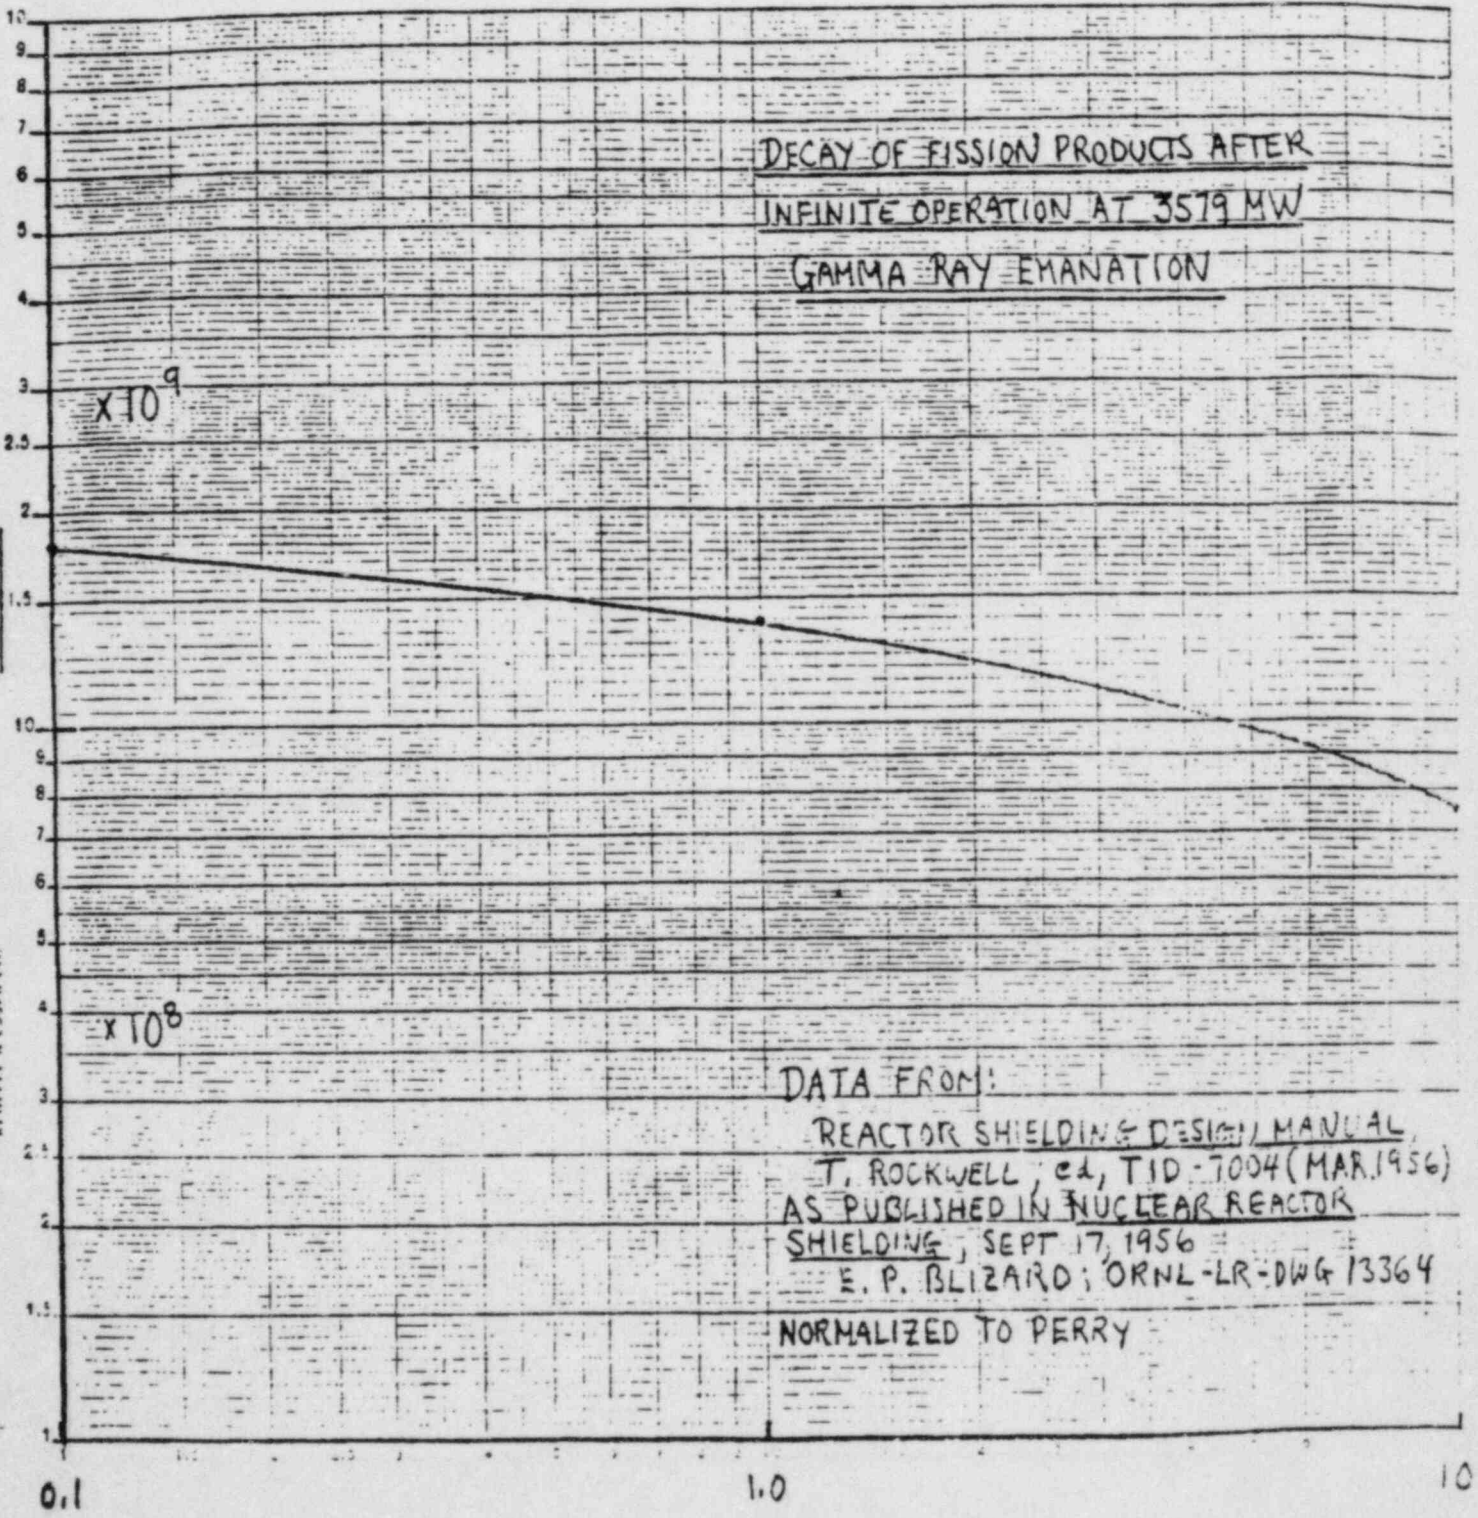 10
9
8
7
6
5
4
3
2.5
2
1.5
10
9
8
7
6
5
4
3
2
1.5
1
DECAY OF FISSION PRODUCTS AFTER
INFINITE OPERATION AT 3579 MW
GAMMA RAY EMANATION
x 10⁹
x 10⁸
DATA FROM:
REACTOR SHIELDING DESIGN MANUAL,
T. ROCKWELL, ed, TID-7004 (MAR.1956)
AS PUBLISHED IN NUCLEAR REACTOR
SHIELDING, SEPT 17, 1956
E. P. BLIZARD; ORNL-LR-DWG 13364
NORMALIZED TO PERRY
0.1
1.0
10